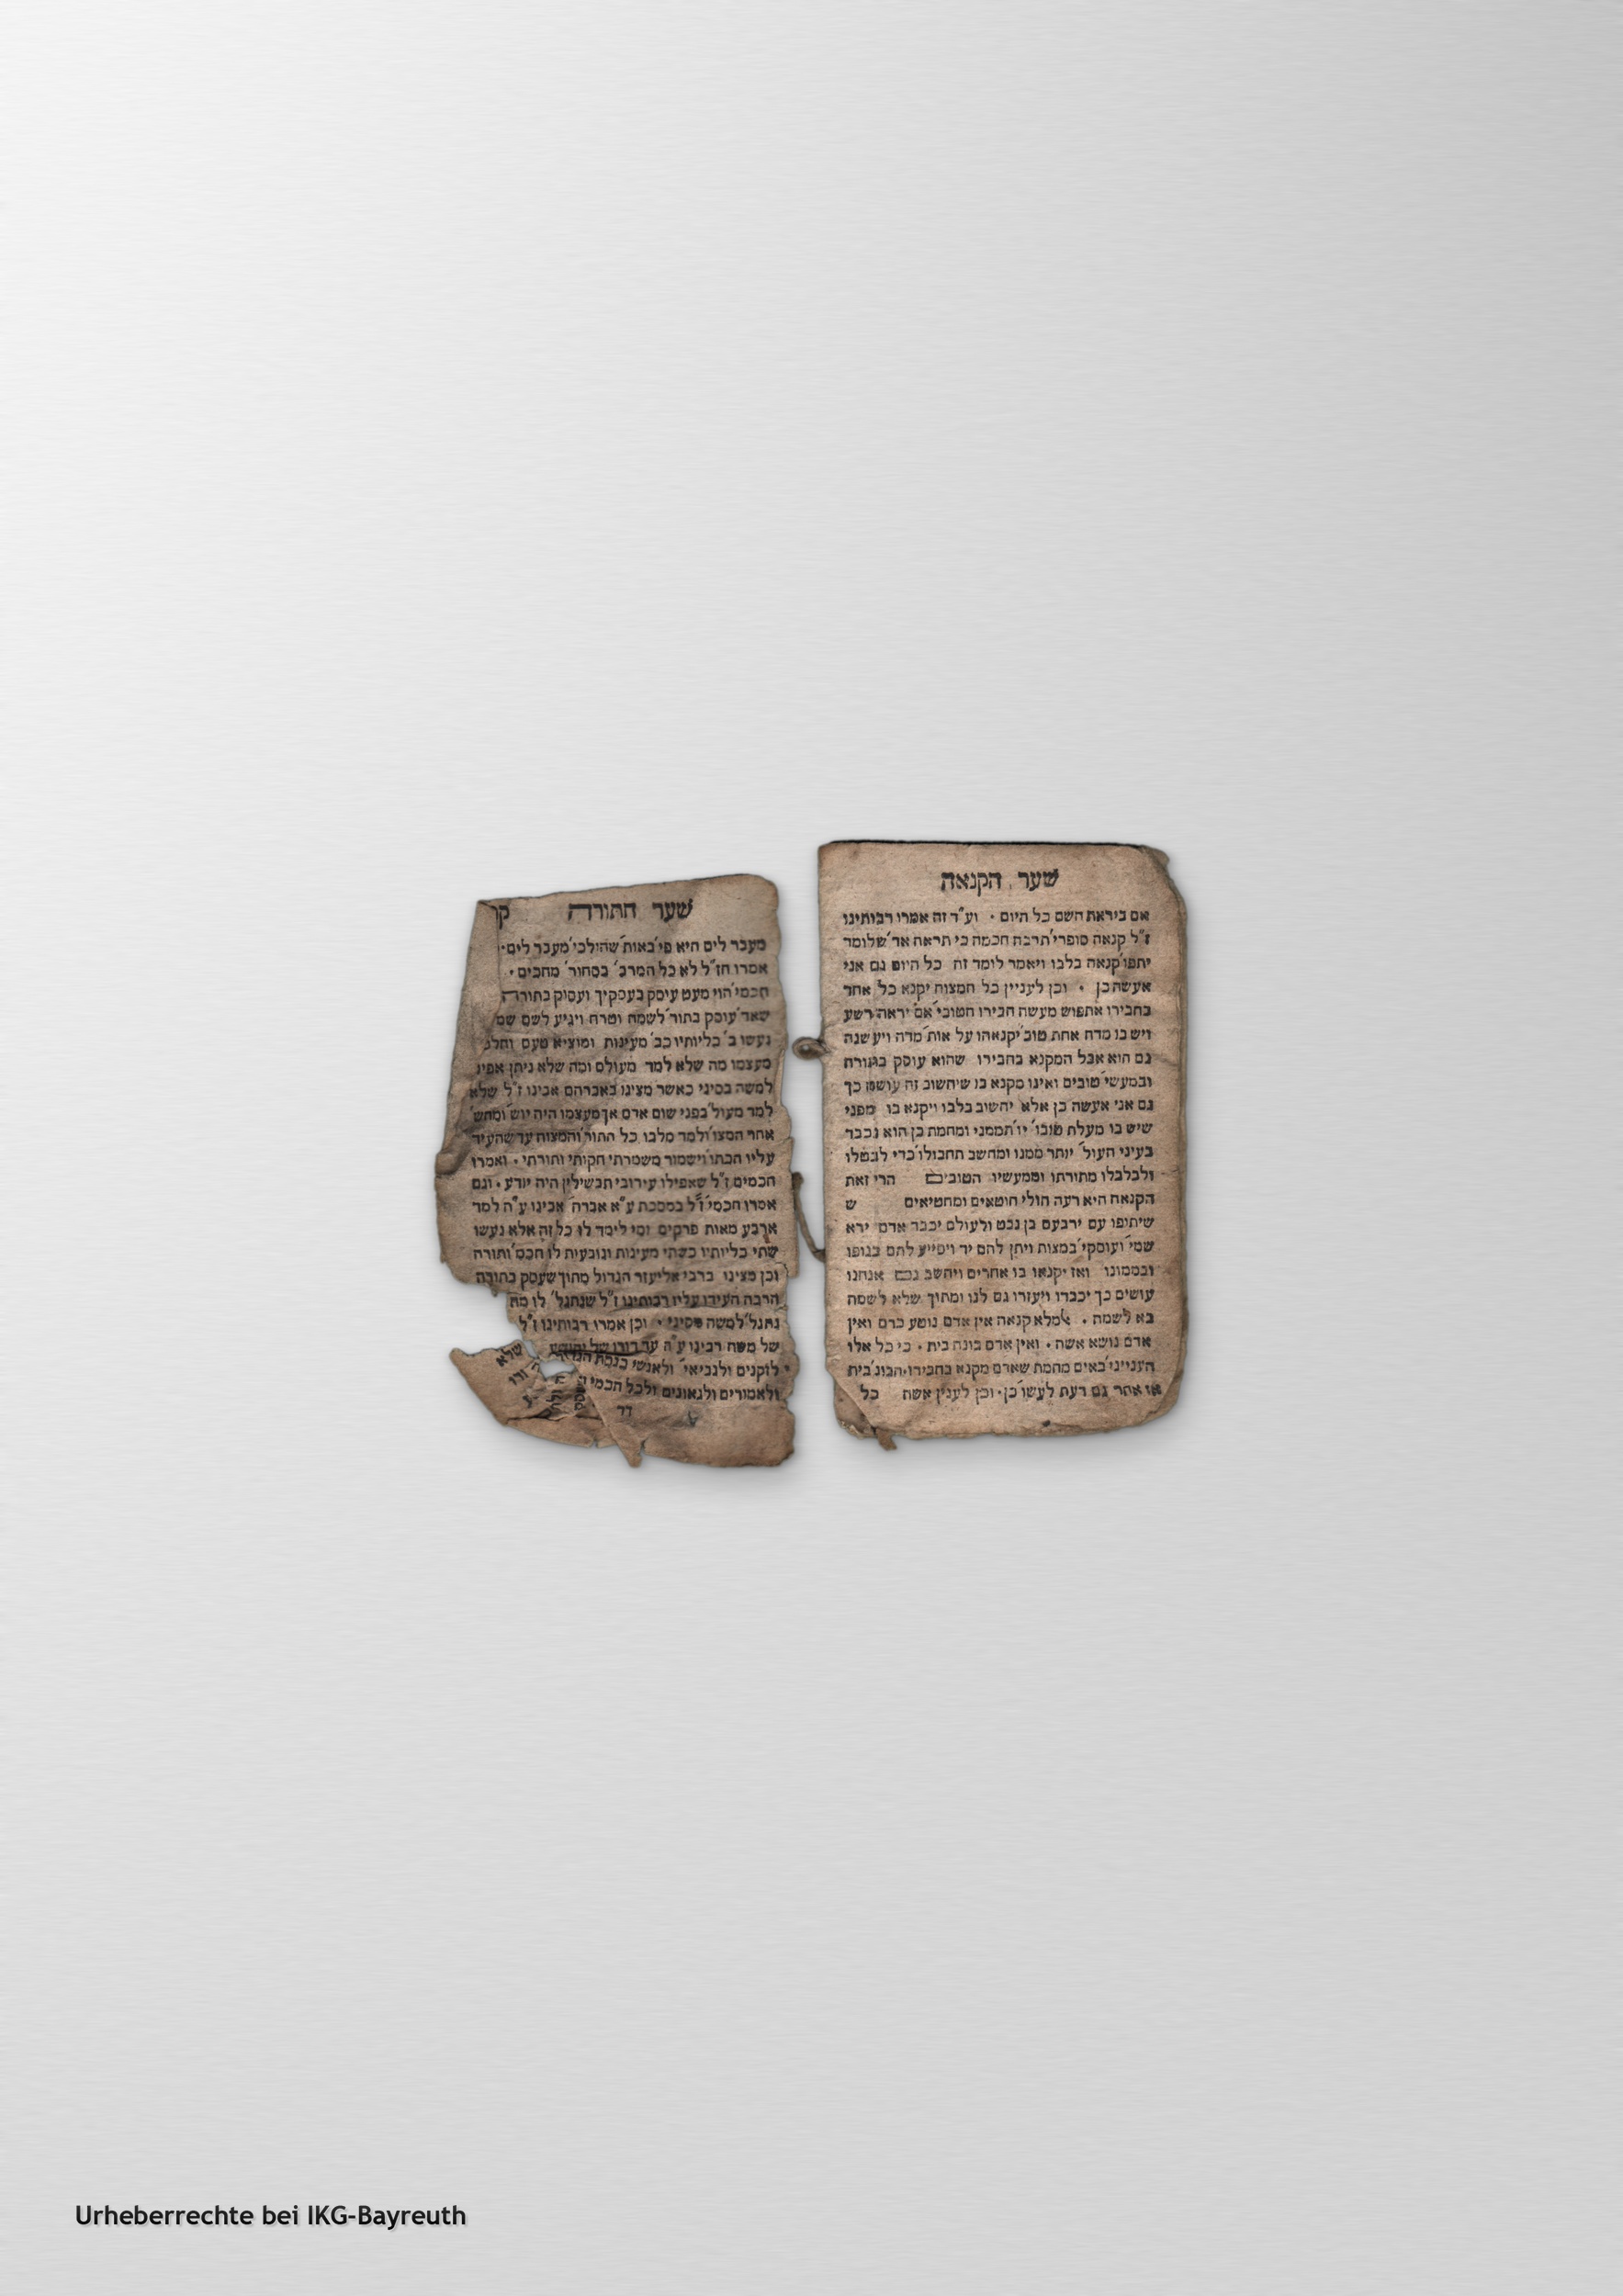 שער הקנאה
אם ביראת השם כל היום · וע"ד זה אמרו רבותינו
ז"ל קנאה סופרי' תרבה חכמה כי תראה אד' שלומד
יתפו' קנאה בלבו ויאמר לומד זה כל היום גם אני
אעשה כן · וכן לעניין כל המצוח יקנא כל אחד
בחבירו אתפוש מעשה חבירו הטובי' אם יראה רשע
ויש בו מדה אחת טוב' יקנאהו על אות' מדה ויעשנה
גם הוא אבל המקנא בחבירו שהוא עוסק בתורה
ובמעשי' טובים ואינו מקנא בו שיחשוב זה עושה כך
גם אני אעשה כן אלא יחשוב בלבו ויקנא בו מפני
שיש בו מעלת טובו' יו' תממני ומחמת כן הוא נכבד
בעיני העול' יותר ממנו ומחשב תחבולו' כדי לבטלו
ולבלבלו מתורתו וממעשיו הטובים הרי זאת
הקנאה היא רעה חולי חוטאים ומחטיאים ש
שיתופו עם ירבעם בן נבט ולעולם יכבד אדם ירא
שמי' ועוסקי' במצות ויתן להם יד ויסייע להם בגופו
ובממונו ואז יקנאו בו אחרים ויחשב גם אנחנו
עושים כך יכבדו ויעזרו גם לנו ומתוך שלא לשמה
בא לשמה · אלמלא קנאה אין אדם נוטע כרם ואין
אדם נושא אשה · ואין אדם בונה בית · כי כל אלו
הענייני' באים מחמת שאדם מקנא בחבירו · הבונ' בית
אז אחר גם דעת לעשו' כן · וכן לענין אשה כל
שער התורה
מעבר לים היא פי' באות' שהולכי' מעבר לים ·
אמרו חז"ל לא כל המרב' בסחור' מחכים ·
חכמי' הוי מעט עיסק בעסקיך ועסוק בתורה
שאד' עוסק בתור' לשמה וטרח ויגיע לשם שם
נעשו ב' כליותיו כב' מעינות ומוציא טעם
מעצמו מה שלא למד מעולם ומה שלא ניתן אפי'
למשה בסיני כאשר מצינו באברהם אבינו ז"ל שלא
למד מעול' בפני שום אדם אך מעצמו היה יוש' ומחש'
אחר המצו' ולמד מלבו כל התור' והמצוה עד שהעיד
עליו הכתו' וישמור משמרתי חקותי ותורתי · ואמרו
חכמים ז"ל שאפילו עירובי תבשילין היה יודע · וגם
אמרו חכמי' ז"ל במסכת ע"א אברה' אבינו ע"ה למד
ארבע מאות פרקים ומי לימד לו כל זה אלא נעשו
שתי כליותיו כשתי מעינות ונובעות לו חכמ' ותורה
וכן מצינו ברבי אליעזר הגדול מתוך שעסק בתורה
הרבה העידו עליו רבותינו ז"ל שנתגל' לו מה
נתגל' למשה מסיני · וכן אמרו רבותינו ז"ל
של משה רבינו ע"ה עד דורו של יהושע
לזקנים ולנביאי' ולאנשי כנסת הגדול'
ולאמורים ולגאונים ולכל חכמי
דר
שלא